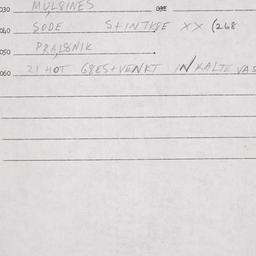 030 MULSINES DATE
040 SODE STINTKSE XX (268
050 PRALSNIK
060 21 HOT GSESTVENKT IN KALTE VAS